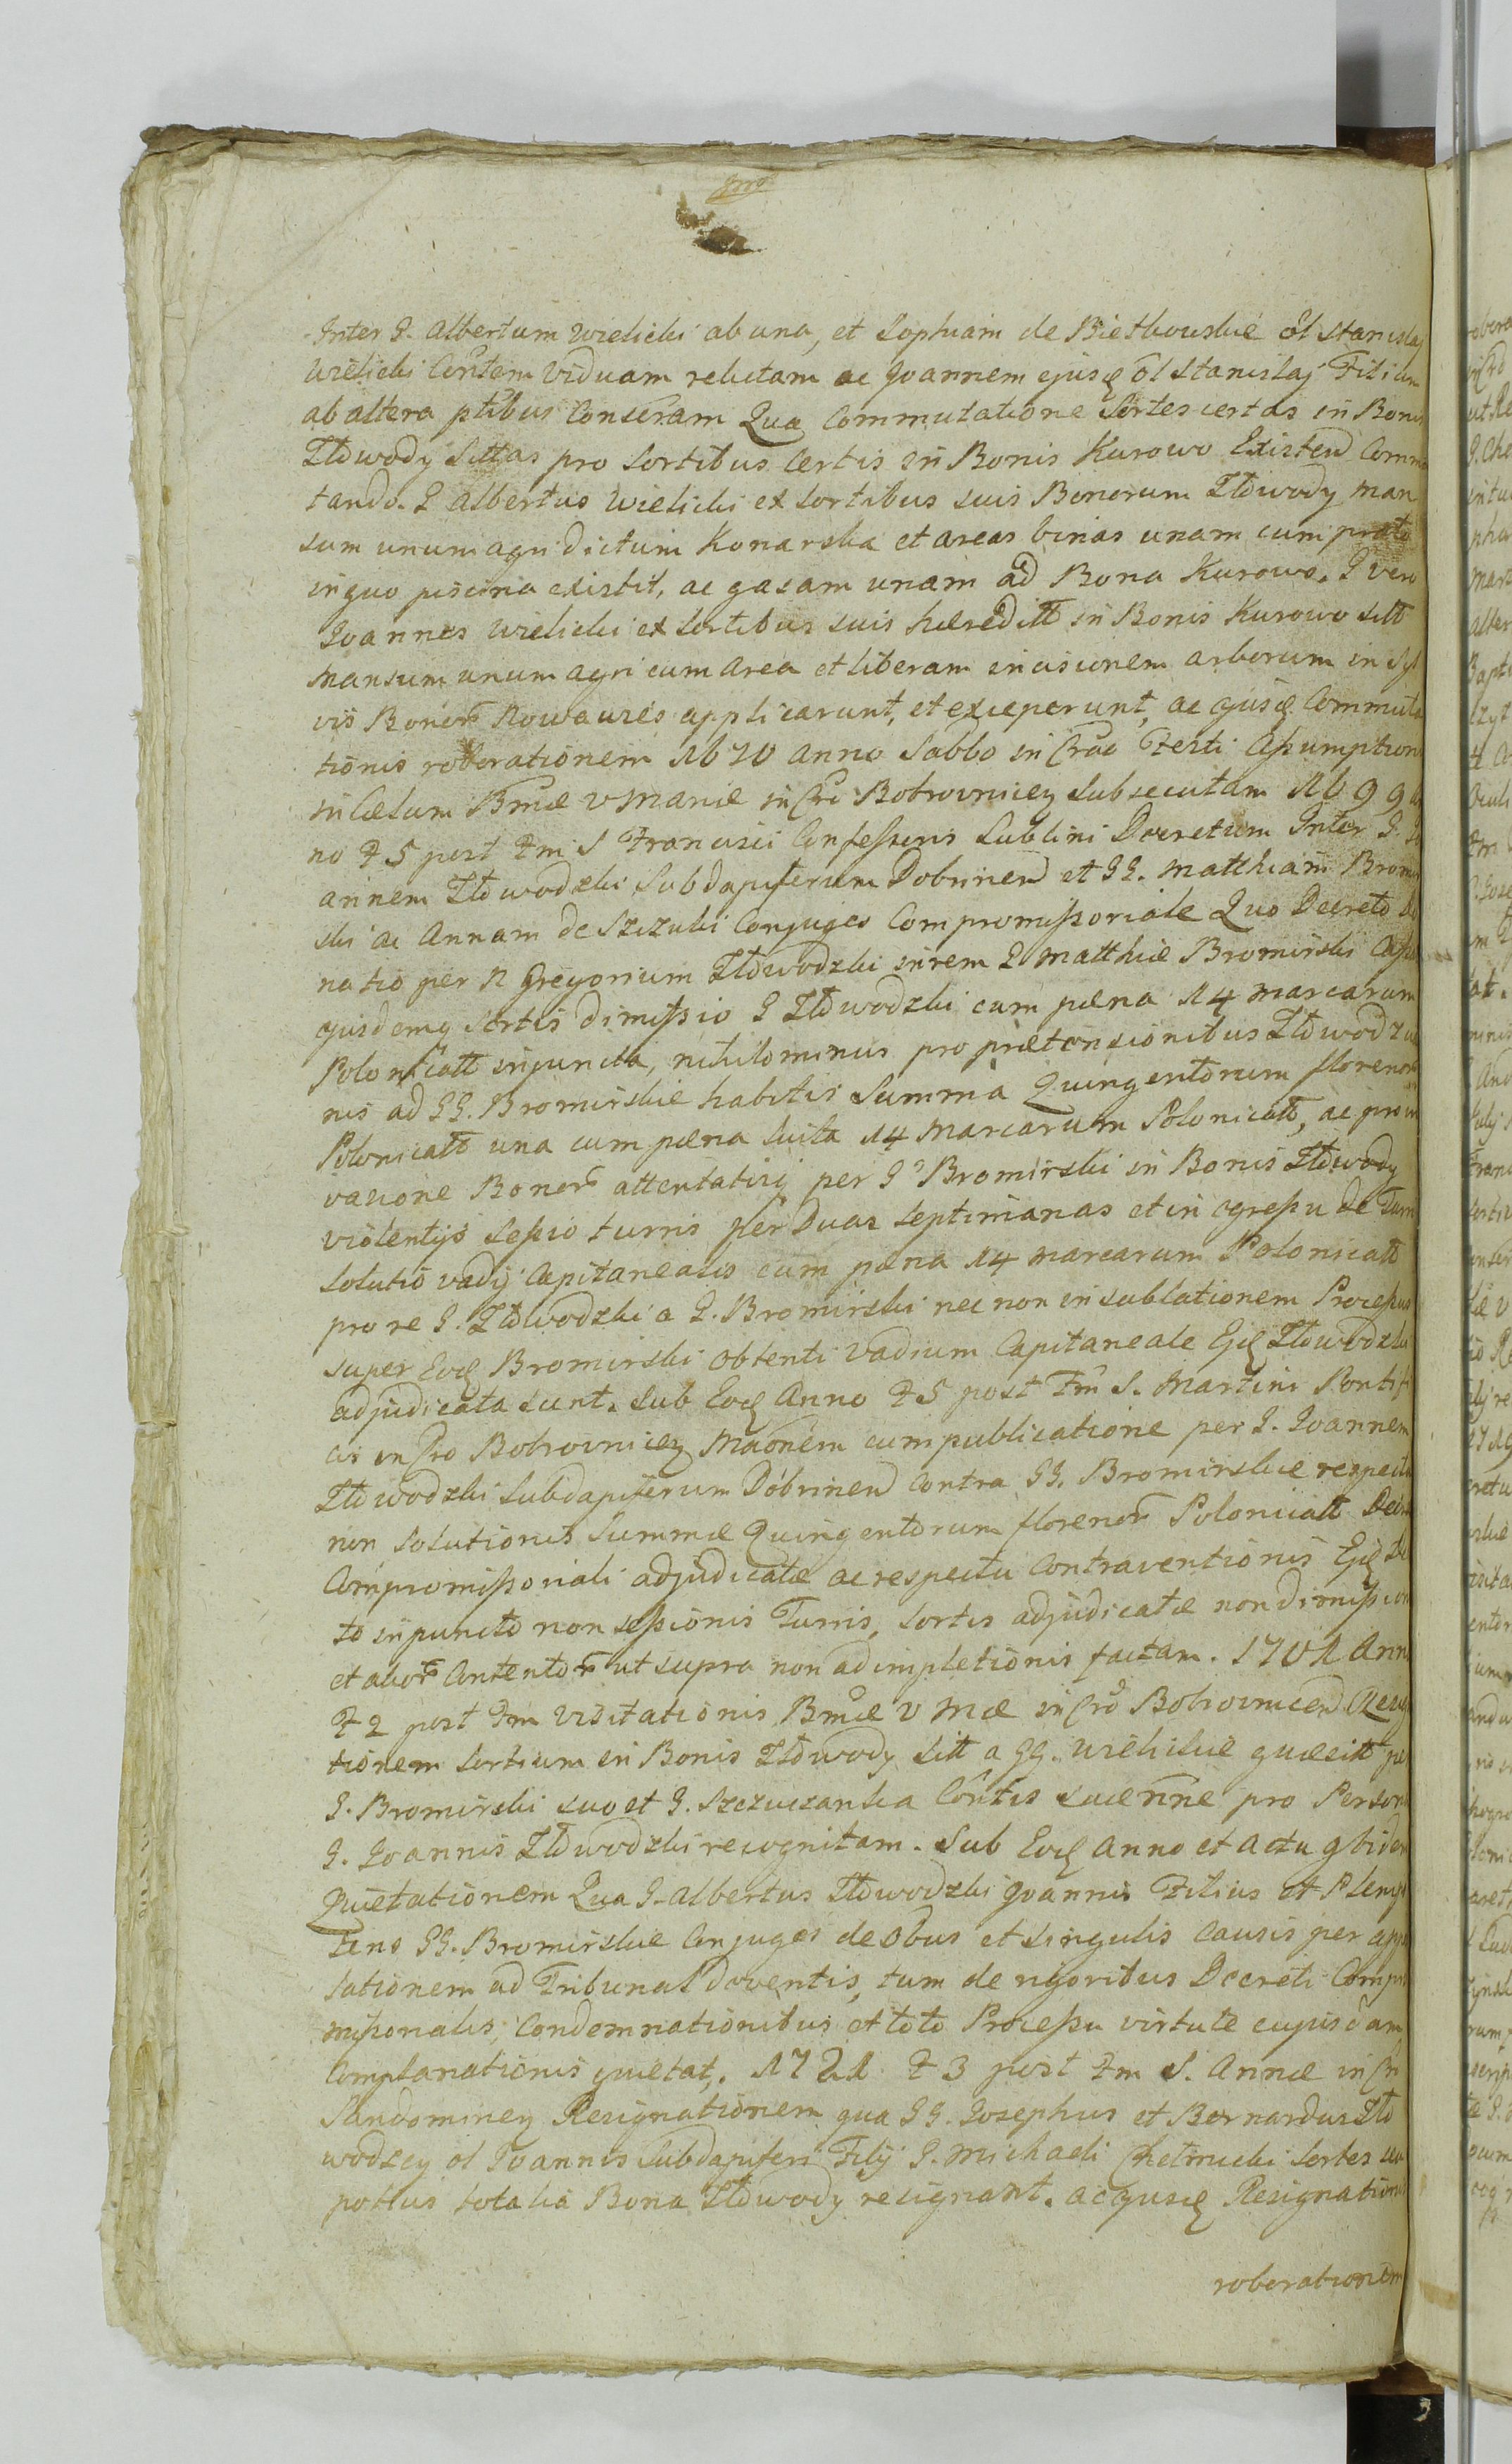 Inter G. Albertum Wielicki ab una, et Sophiam de Biethowskie ol Stanislaj
Wielicki Contem Viduam relictam ac Joannem ejusq ol Stanislaj Filium
ab altera ptibus Conseram Qua Commutatione Sortes certas in Bonis
Złowody Sittas pro Sortibus Certis in Bonis Kurowo Existend Commu
tando. G Albertus Wielicki ex Sortibus suis Bonorum Złowody man
sum unum agri dictum Konarska et areas binas unam cum prato
in quo piscina existit, ac gazam unam ad Bona Kurowo. G vero
Joannes Wielicki ex Sortibus suis hæreditt in Bonis Kurowo sitt
Mansum unum agri cum area et liberam incisionem arborum in Syl
vis Bonor Nowawies applicarunt, et exceperunt, ac ejusq Commuta
tionis roborationem 1670 anno Sabbo in Crao Festi Assumptionis
in Cælum Bmæ V Mariæ in Cro Bobrovnicen subsecutam 1699 an
no F 5 post Fm S Francisci Confessoris Lublini Decretum Inter G. Jo
annem Złowodzki Subdapiferum Dobrinen et GG. Matthiam Bromir
ski ac Annam de Szczuki Conjuges Compromissoriale Quo Decreto
natio per N Gregorium Złowodzki in rem G Matthiæ Bromirski
ejusdemq Sortis dimissio G Złowodzki cum pæna 14 marcarum
Polonicatt injuncta, nihilominus pro prætensionibus Złowodzia
nis ad GG. Bromirskie habitis Summa Quingentorum florenor
Polonicatt una cum pæna luita 14 Marcarum Polonicatt, ac pro in
vasione Bonor attentatisq per G Bromirski in Bonis Złowody
violentijs Sessio turris per Duas Septimanas et in egressu de Turri
Solutio vadij Capitanealis cum pæna 14 marcarum Polonicatt
pro re G. Złowodzki a G. Bromirski nec non in sublationem Processus
super Eoq Bromirski obtenti Vadium Capitaneale Ejq Złowodzki
adjudicata sunt. Sub Eoq Anno F 5 post Fm S. Martini Pontifi
cis in Cro Bobrovnicen Maonem cum publicatione per G. Joannem
Złowodzki Subdapiferum Dobrinen Contra GG. Bromirskie respectu
non Solutionis Summæ Quingentorum florenor Polonicatt Decreto
Compromissoriali adjudicatæ ac respectu Contraventionis Ejq De
to in puncto non sessionis Turris, Sortis adjudicatæ non dimission
et alior Contentor ut supra non adimpletionis factam. 1701 Ann
F 2 post Fm Visitationis Bmæ V Mæ in Cro Bobrovnicen Resig
tionem Sortium in Bonis Złowody Sitt a GG. Wielickie quæsitt pe
G. Bromirski suo et G. Szczuczanka Contis suæ nne pro Person
G. Joannis Złowodzki recognitam. Sub Eoq Anno et Actu gbiden
Quietationem Qua G. Albertus Złowodzki Joannis Filius et Plenip
tens GG. Bromirskie Conjuges de Obus et Singulis Causis per appe
lationem ad Tribunal doventis, tum de rigoribus Decreti Compro
missorialis, Condemnationibus et toto Processu virtute cujusdam
Complanationis quietat. 1721 F 3 post Fm S. Annæ in Cro
Sandomirien Resignationem qua GG. Josephus et Bernardus Zło
wodscy ol Joannis Subdapiferi Filij G. Michaeli Chełmicki Sortes seu
potius totalia Bona Złowody resignant. ac ejusq Resignationis
roborationem